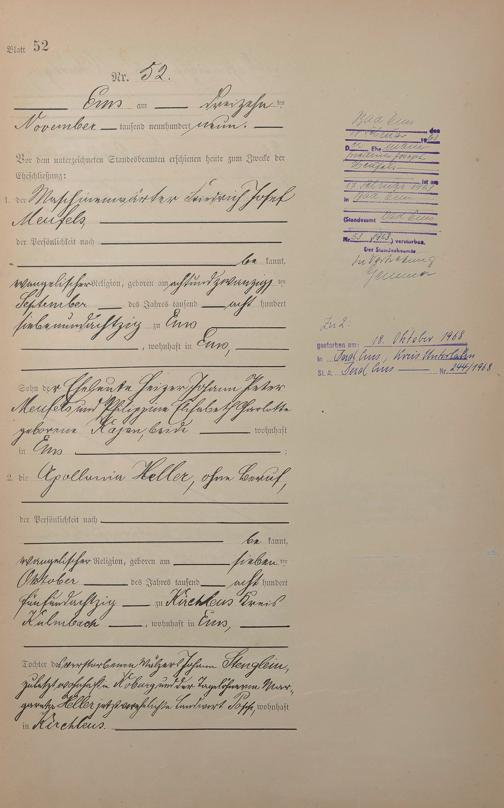 Blatt 52
Nr. 52.
Ems am dreizehnten
November tausend neunhundert neun.
Vor dem unterzeichneten Standesbeamten erschienen heute zum Zwecke der
Eheschließung:
1. der Maschinenwärter Friedrich Josef
Meufels
der Persönlichkeit nach
be kannt,
evangelischer Religion, geboren am achtundzwanzigsten
September des Jahres tausend acht hundert
siebenundachtzig zu Ems
, wohnhaft in Ems,
Sohn der Eheleute Heizer Johann Peter
Meufels und Philippine Elisabeth Charlotte
geborene, beide wohnhaft
in Ems ;
2. die Apollonia Heller, ohne Beruf,
der Persönlichkeit nach
be kannt,
evangelischer Religion, geboren am sieben ten
Oktober des Jahres tausend acht hundert
fünfundachtzig zu Kirchleus Kreis
Kulmbach, wohnhaft in Ems,
Tochter des verstorbenen Johann Stenglein,
zuletzt wohnhaft in Koburg und der Tagelöhnerin Mar-
garetha Heller jetzt verehelichte Landwirt, wohnhaft
in Kirchleus.
Bad Ems
den
D Ehe
Meufels
ist am
in Bad Ems
(Standesamt Bad Ems
Nr. 1963) verstorben.
Der Standesbeamte
In Vertretung
Zu 2.
gestorben am: 18. Oktober 1968
in Bad Ems, Kreis Unterlahn
St. A. Bad Ems Nr. 244/1968